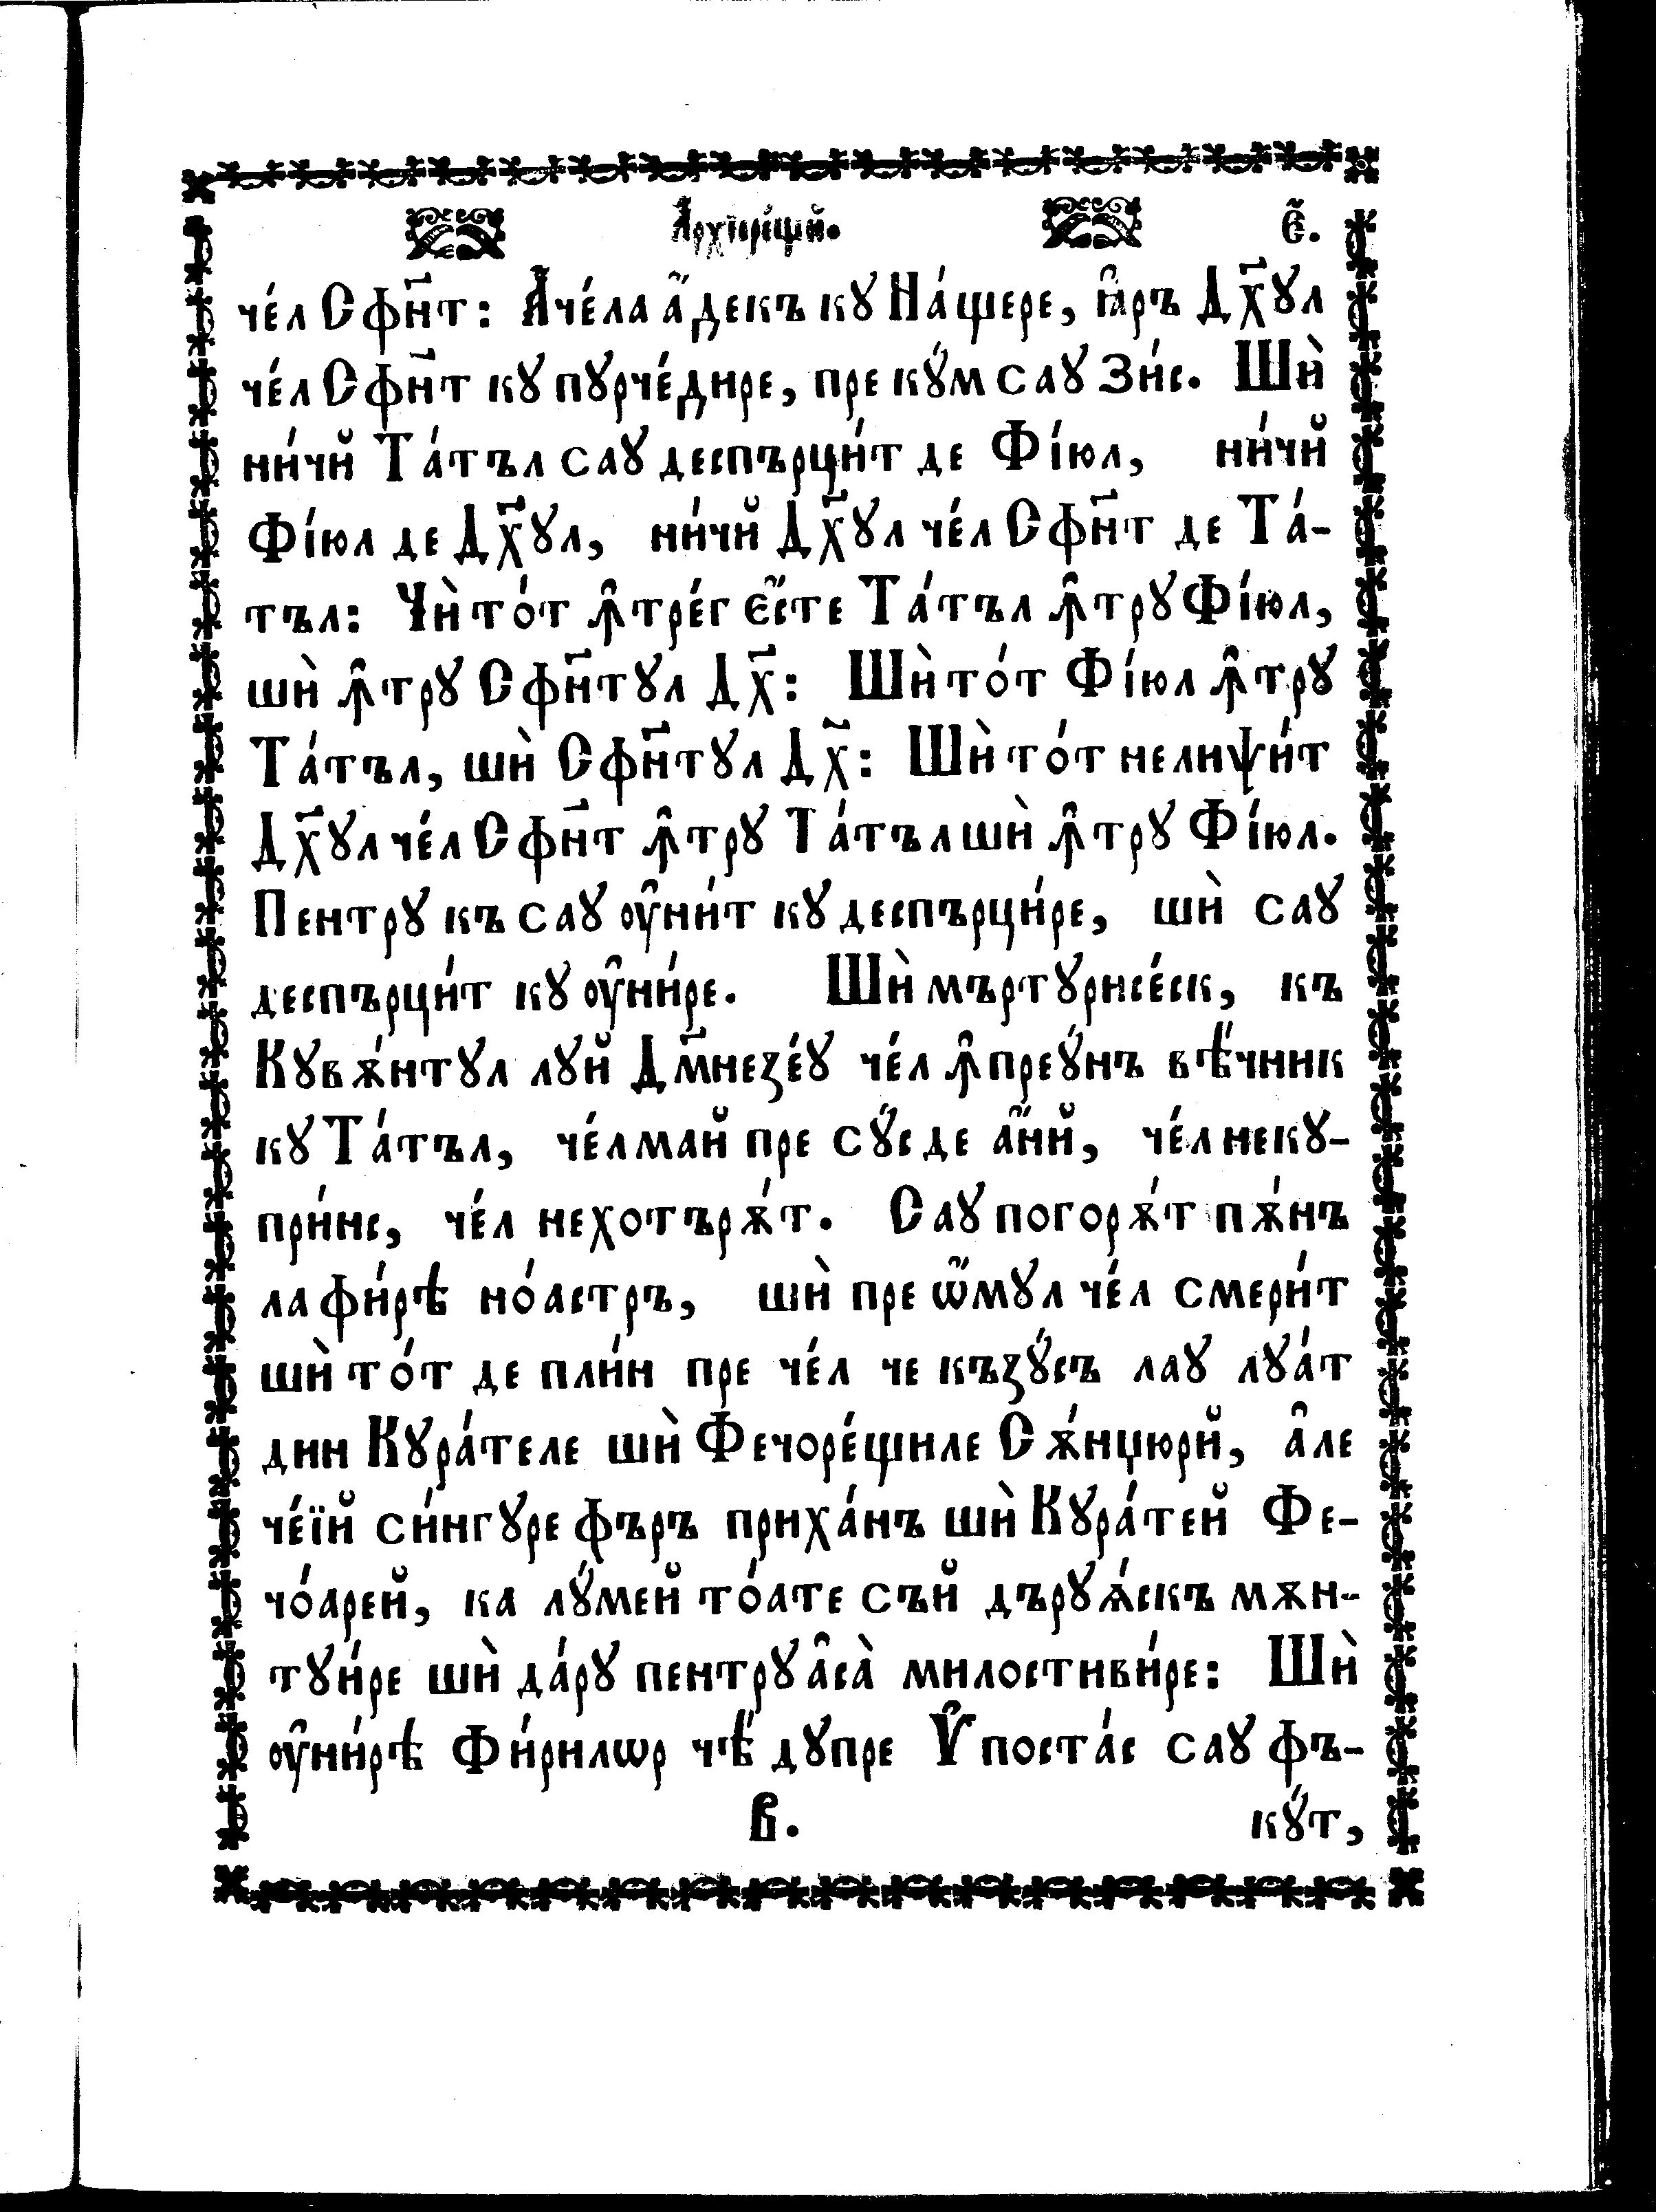 А҆рхїере́щй. є҃.
че́л Сфн҃т: А҆че́ла а҆́декъ кꙋ На́щере, ꙗ҆ръ Дх҃ꙋл
че́л Сфн҃т кꙋ пꙋрче́дире, пре кꙋ́м саꙋ Зи́с. Шѝ
ни́чй Та́тъл саꙋ деспърци́т де Фі́юл, ни́чй
Фі́юл де Дх҃ꙋл, ни́чй Дх҃ꙋл че́л Сфн҃т де Та́-
тъл: Чѝ то́т ꙟ҆тре́г є҆́сте Та́тъл ꙟ҆трꙋ Фі́юл,
шѝ ꙟ҆трꙋ Сфн҃тꙋл Дх҃: Шѝ то́т Фі́юл ꙟ҆трꙋ
Та́тъл, шѝ Сфн҃тꙋл Дх҃: Шѝ то́т нелиѱи́т
Дх҃ꙋл че́л Сфн҃т ꙟ҆трꙋ Та́тъл шѝ ꙟ҆трꙋ Фі́юл.
Пентрꙋ къ саꙋ оу҆ни́т кꙋ деспърци́ре, шѝ саꙋ
деспърци́т кꙋ оу҆ни́ре. Шѝ мъртꙋрисе́ск, къ
Кꙋвѫ́нтꙋл лꙋй Дм҃незе́ꙋ че́л ꙟ҆преꙋ́нъ вѣ́чник
кꙋ Та́тъл, че́л май пре сꙋ́с де а҆́нй, че́л некꙋ-
при́нс, че́л нехотърѫ́т. Саꙋ погорѫ́т пѫ́нъ
ла фи́рѣ но́астръ, шѝ пре ѡ҆́мꙋл че́л смери́т
шѝ то́т де пли́н пре че́л че къзꙋ́съ лаꙋ лꙋа́т
дин Кꙋра́теле шѝ Фечоре́щиле Сѫ́нџюрй, а҆ле
че́їй си́нгꙋре фъръ приха́нъ шѝ Кꙋра́тей Фе-
чо́арей, ка лꙋ́мей то́ате съй дърꙋѧ́скъ мѫн-
тꙋи́ре шѝ да́рꙋ пентрꙋ а҆са̀ милостиви́ре: Шѝ
оу҆ни́рѣ Фи́рилѡр чѣ́ дꙋпре Ѵ҆поста́с саꙋ фъ-
в҃. кꙋ́т,